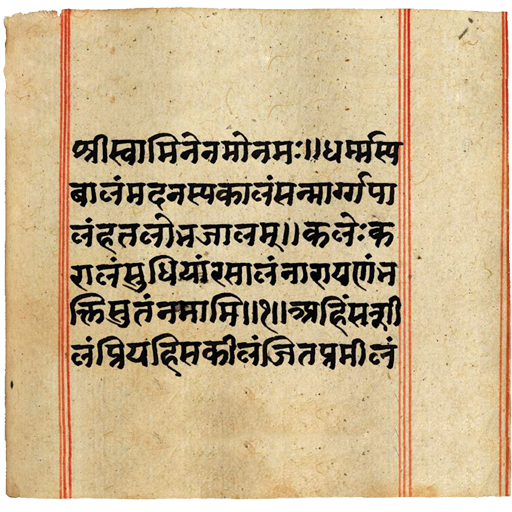 श्रीस्वामिनेनमोनमः॥धर्म्मस्य
बालंमदनस्यकालंसन्मार्ग्गपा
लंहतलोभजालम्॥कलेःक
रालंसुधियांरसालंनारायणंभ
क्तिसुतंनमामि॥१॥अहिंसत्रशी
लंप्रियहिंसकीलंजितप्रमीलं